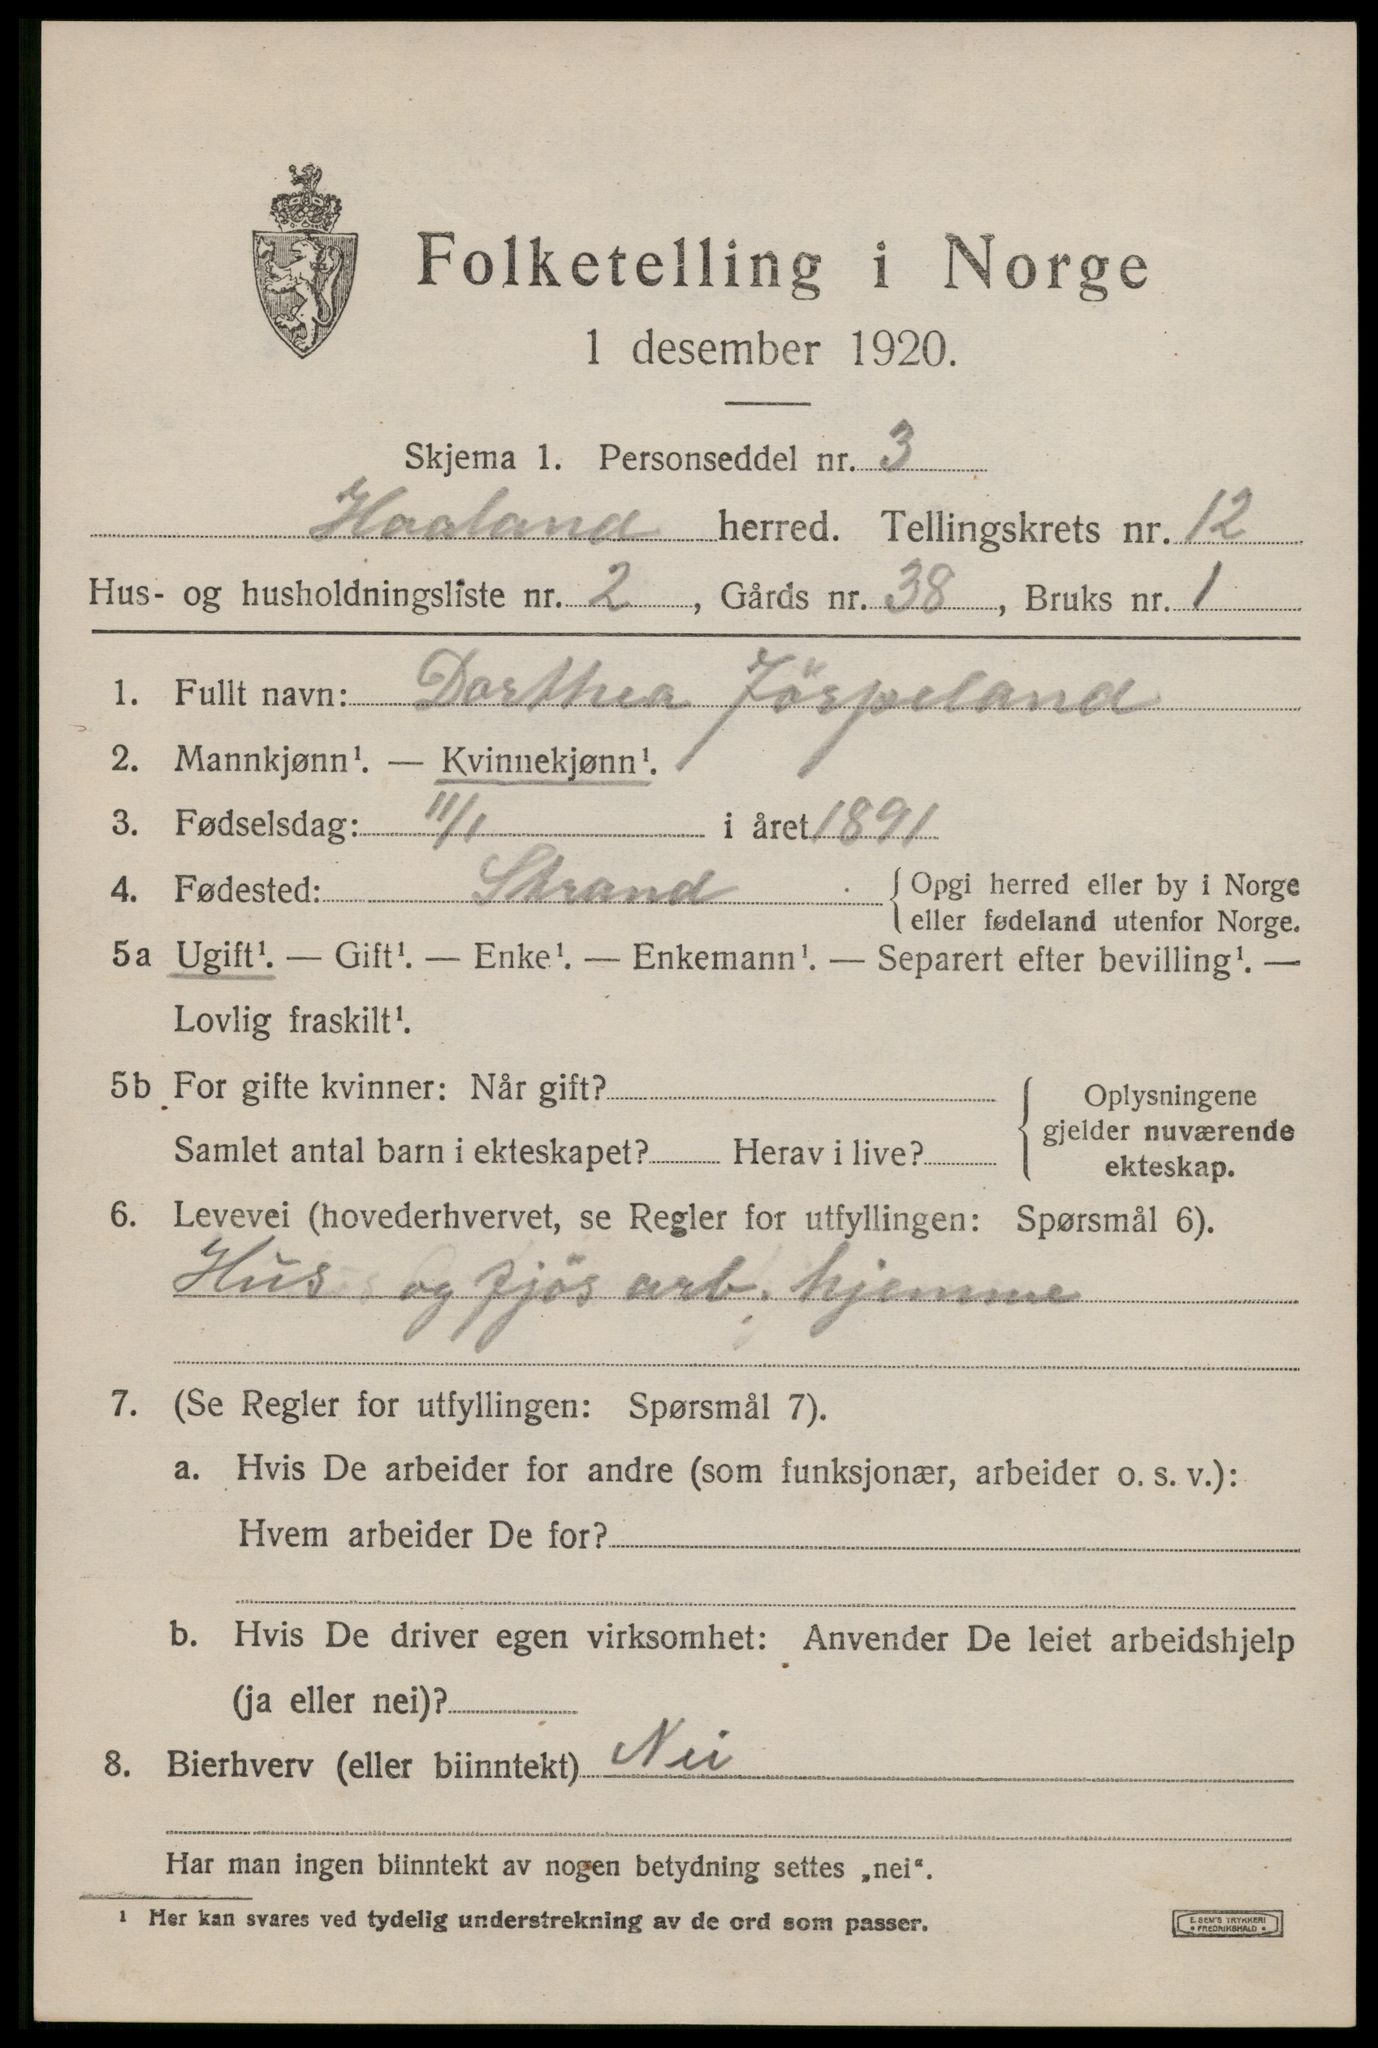 Folketelling i Norge
1 desember 1920.
Skjema 1. Personseddel nr. 3
Haaland herred. Tellingskrets nr. 12
Hus- og husholdningsliste nr. 2, Gårds nr. 38, Bruks nr. 1
1. Fullt navn: Dorthea Jörpeland
2. Mannkjønn¹. — Kvinnekjønn¹.
3. Fødselsdag: 11/1 i året 1891
4. Fødested: Strand { Opgi herred eller by i Norge
eller fødeland utenfor Norge.
5a Ugift¹. — Gift¹. — Enke¹. — Enkemann¹. — Separert efter bevilling¹. —
Lovlig fraskilt¹.
5b For gifte kvinner: Når gift?
Samlet antal barn i ekteskapet? Herav i live?
{ Oplysningene
gjelder nuværende
ekteskap.
6. Levevei (hovederhvervet, se Regler for utfyllingen: Spørsmål 6).
Hus og fjös arb. hjemme
7. (Se Regler for utfyllingen: Spørsmål 7).
a. Hvis De arbeider for andre (som funksjonær, arbeider o. s. v.):
Hvem arbeider De for?
b. Hvis De driver egen virksomhet: Anvender De leiet arbeidshjelp
(ja eller nei)?
8. Bierhverv (eller biinntekt) Nei
Har man ingen biinntekt av nogen betydning settes „nei“.
¹ Her kan svares ved tydelig understrekning av de ord som passer.
E. SEM'S TRYKKERI
• FREDRIKSHALD •